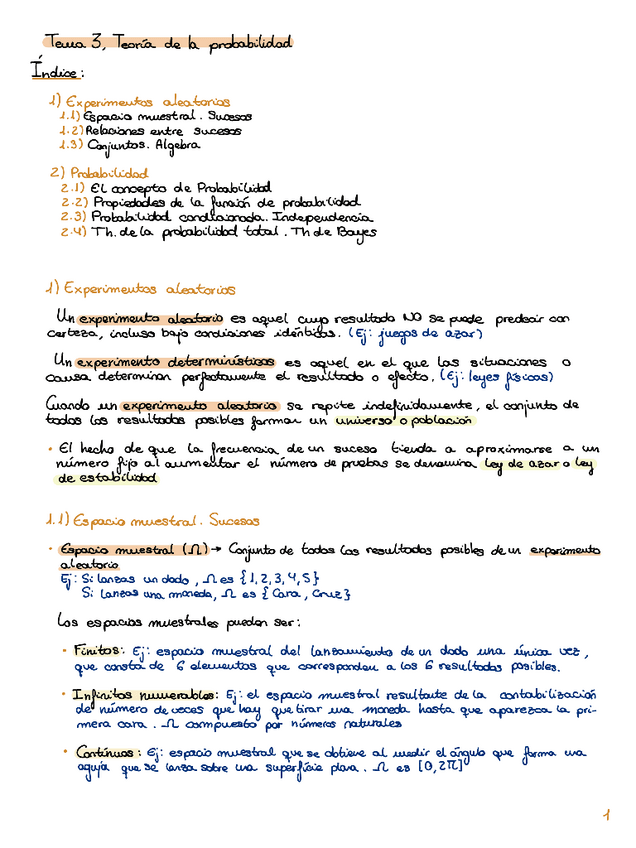 Tema 3, Teoría de la probabilidad
Índice:
1) Experimentos aleatorios
1.1) Espacio muestral. Sucesos
1.2) Relaciones entre sucesos
1.3) Conjuntos. Algebra
2) Probabilidad
2.1) El concepto de Probabilidad
2.2) Propiedades de la función de probabilidad
2.3) Probabilidad condicionada. Independencia
2.4) Th. de la probabilidad total. Th de Bayes
1) Experimentos aleatorios
Un experimento aleatorio es aquel cuyo resultado NO se puede predecir con
certeza, incluso bajo condiciones idénticas. (Ej: juegos de azar)
Un experimento determinísticos es aquel en el que las situaciones o
causa determinan perfectamente el resultado o efecto. (Ej: leyes físicas)
Cuando un experimento aleatorio se repite indefinidamente, el conjunto de
todos los resultados posibles forman un universo o población
• El hecho de que la frecuencia de un suceso tienda a aproximarse a un
número fijo al aumentar el número de pruebas se denomina ley de azar o ley
de estabilidad
1.1) Espacio muestral. Sucesos
• Espacio muestral (Ω) → Conjunto de todos los resultados posibles de un experimento
aleatorio
Ej: Si lanzas un dado, Ω es {1,2,3,4,5}
Si lanzas una moneda, Ω es {Cara, Cruz}
Los espacios muestrales pueden ser:
• Finitos: Ej: espacio muestral del lanzamiento de un dado una única vez,
que consta de 6 elementos que corresponden a los 6 resultados posibles.
• Infinitos numerables: Ej: el espacio muestral resultante de la contabilización
de número de veces que hay que tirar una moneda hasta que aparezca la pri-
mera cara. Ω compuesto por números naturales
• Contínuos: Ej: espacio muestral que se obtiene al medir el ángulo que forma una
aguja que se lanza sobre una superficie plana. Ω es [0,2π]
1